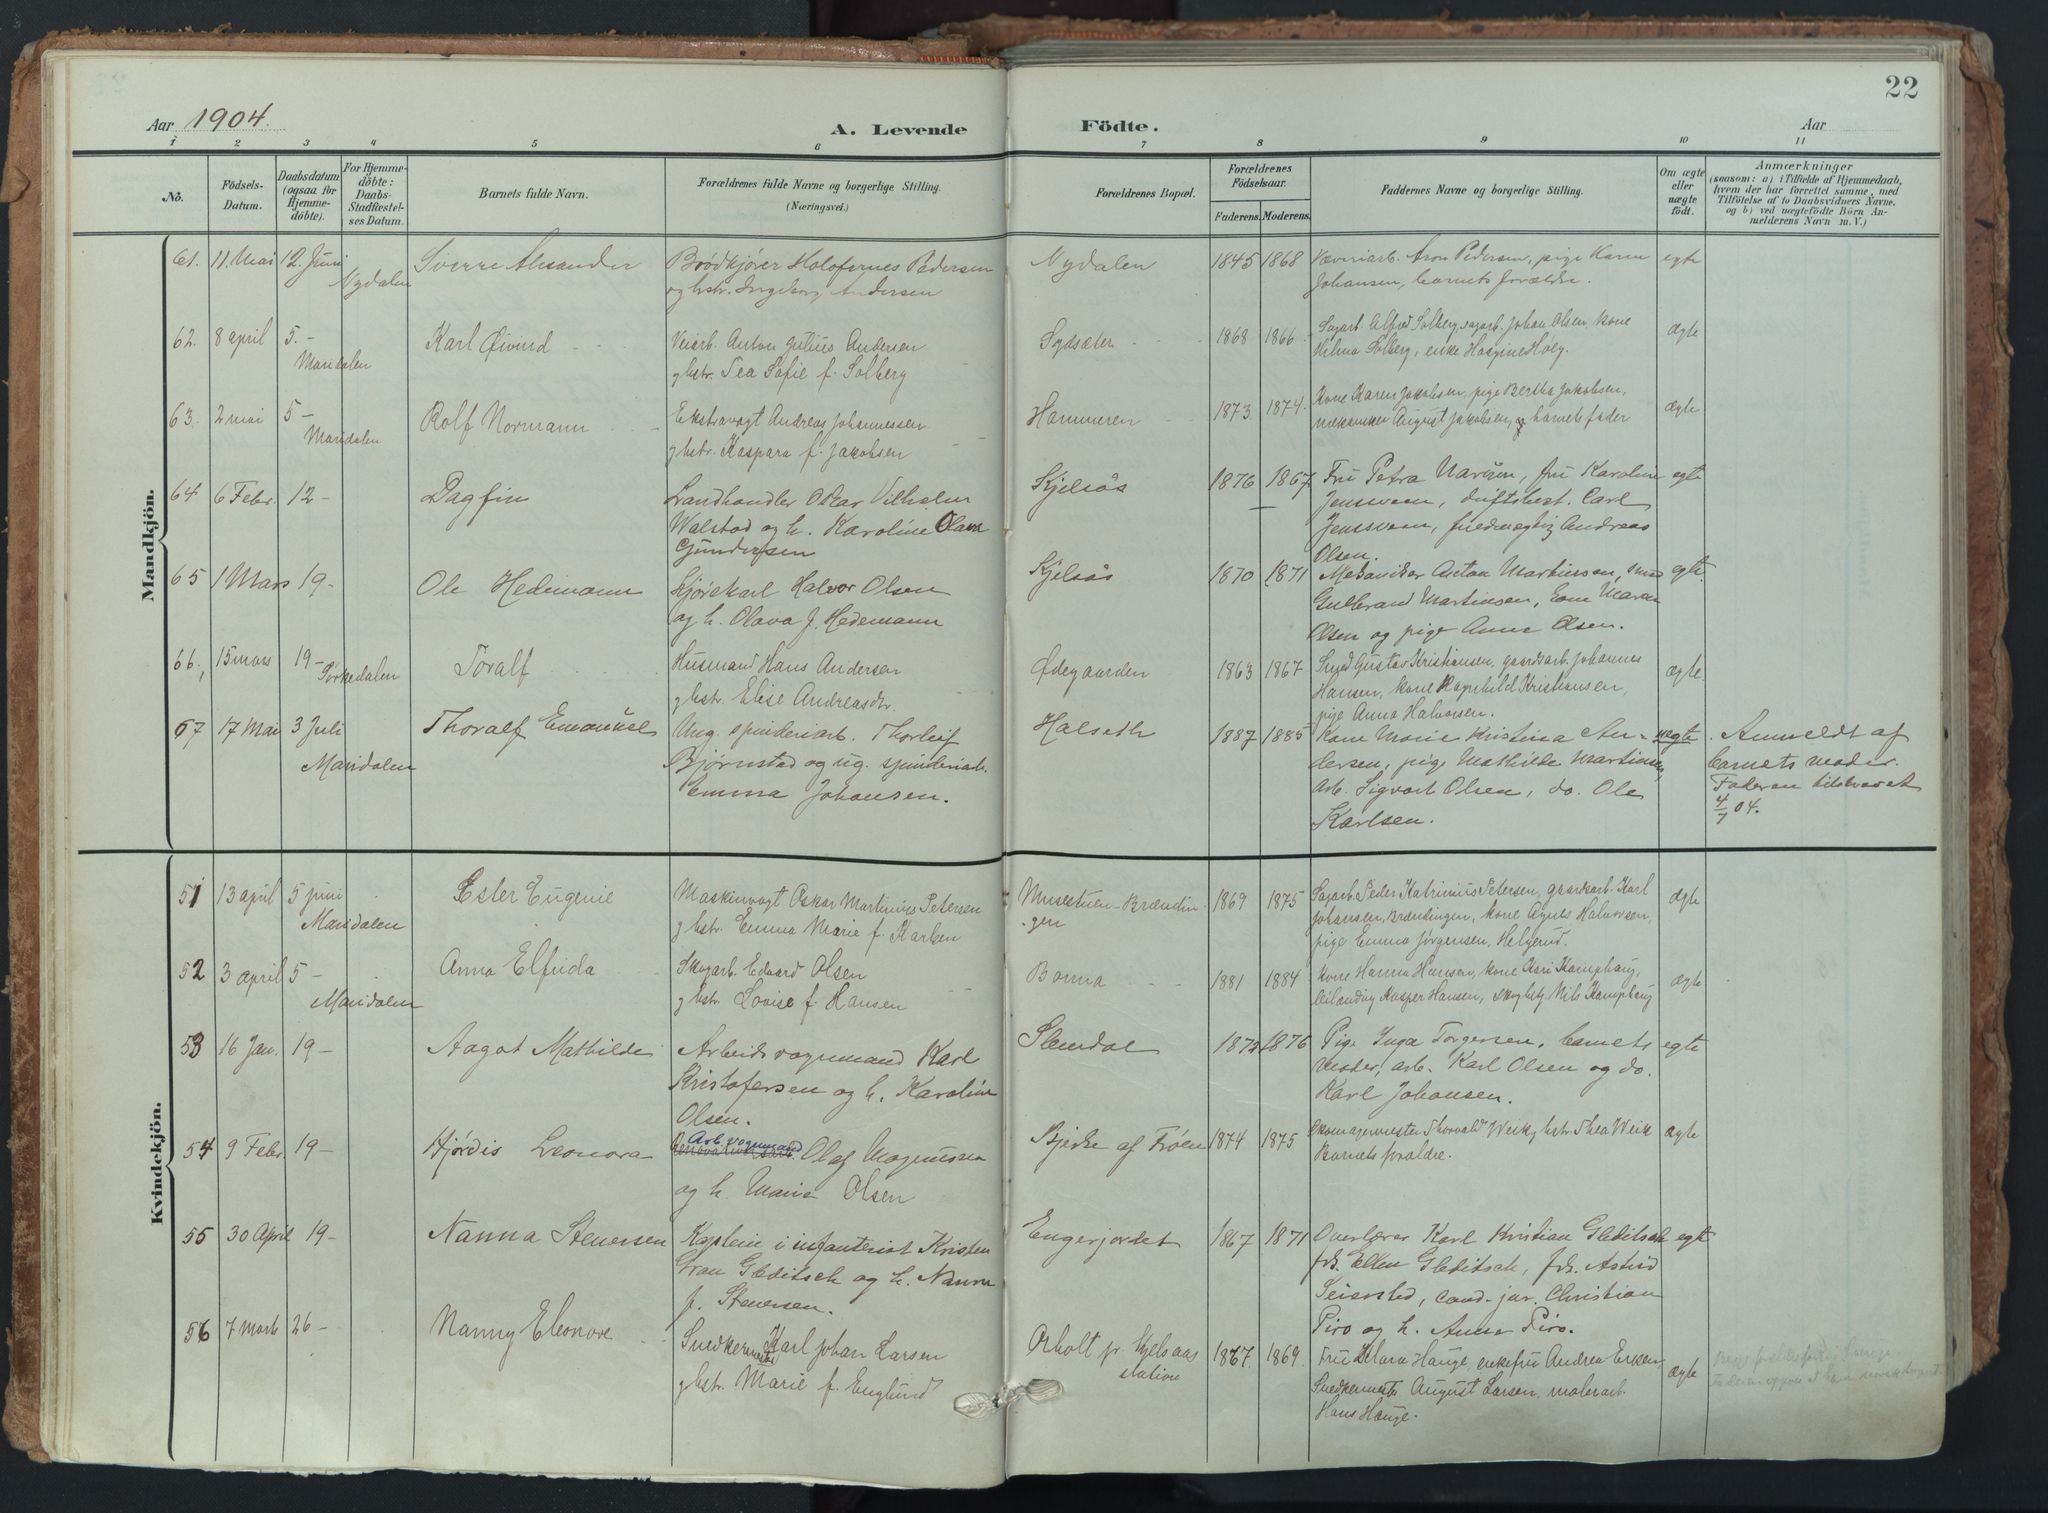 22
Aar 1904. A. Levende Födte. Aar
1 2 3 4 5 6 7 8 9 10 11
No.
Födsels-
Datum.
Daabsdatum
(ogsaa for
Hjemme-
döbte).
For Hjemme-
döbte:
Daabs-
Stadfæstel-
ses Datum.
Barnets fulde Navn.
Forældrenes fulde Navne og borgerlige Stilling.
(Næringsvei.)
Forældrenes Bopæl.
Forældrenes
Födselsaar.
Faderens. Moderens.
Faddernes Navne og borgerlige Stilling.
Om ægte
eller
uægte
födt.
Anmærkninger
(saasom: a) i Tilfælde af Hjemmedaab,
hvem der har forrettet samme, med
Tilföielse af to Daabsvidners Navne,
og b) ved uægtefödte Börn An-
melderens Navn m. V.)
Mandkjön.
61. 11. Mai 12. Juni Nydalen
Sverre Alexander
Brödkjörer Holofernes Pedersen
og hstr. Ingeborg Andersen
Nydalen
1845 1868
Væveriarb. Aron Pedersen, pige Karen
Johansen, barnets forældre.
egte
62. 8 april 5. – Maridalen
Karl Øivind
Veiarb. Anton Julius Andersen
g hstr. Tea Sofie f. Solberg
1868 1866
Sagarb. Alfred Solberg, sagarb. Johan Olsen, kone
Hilma Solberg, enke
ægte
63. 2 mai 5 – Maridalen
Rolf Normann
Ekstravagt Andreas Johannessen
g hstr. Kaspara f. Jakobsen
Hammeren
1873 1874.
Kone Karen Jakobsen, pige Bertha Jakobsen,
August Jakobsen, barnets fader
ægte
64 6 Febr. 12 –
Dagfin
Landhandler Oskar Vilhelm
Walstad og h. Karoline Olava
Gundersen
Kjelsås
1876 1867
Fru Petra fru Karoline
Jenssveen, driftsbest. Carl
Jenssveen, Andreas
Olsen.
egte
65 1 Mars 19 –
Ole Hedemann
Kjørekarl Halvor Olsen
og h. Olava J. Hedemann
Kjelsås
1870 1871
Anton Martinsen, smed
Gulbrand Martinsen, kone Maren
Olsen og pige Anna Olsen.
egte
66. 15 mars 19 – Sørkedalen
Toralf
Husmand Hans Andersen
g hstr. Elise Andreasdtr.
Ødegaarden
1863 1867
Smed Gustav Kristiansen, gaardsarb. Johannes
Hansen, kone Ragnhild Kristiansen,
pige Anna Halvorsen.
ægte.
67 17 Mai 3 Juli Maridalen
Thoralf Emanuel
Ung. spinderiarb. Thorleif
Bjørnstad og ug. spinderiarb.
Emma Johansen.
Halseth
1887 1885
Kone Marie Kristina An-
dersen, pige Mathilde Martinsen,
Arb. Sigvart Olsen, do. Ole
Karlsen.
uegte
Anmeldt af
barnets moder.
Faderen tilskrevet
4/7 04.
Kvindekjön.
51 13 april 5 juni Maridalen
Ester Eugenie
Maskinvagt Oskar Martinius Petersen
g hstr. Emma Marie f. Karlsen
Musestuen – Brændin-
gen
1869 1875
Sagarb. Peder Katrinius Petersen, gaardsarb. Karl
Johansen, Brændingen, kone Agnes Halvorsen,
pige Emma Jørgensen, Helgerud.
ægte
52 3 april 5 – Maridalen
Anna Elfrida
Skogarb. Edvard Olsen
g hstr. Lovise f. Hansen
Bonna
1881 1884
Kone Hanna Hansen, kone Kari Kamphaug,
Kasper Hansen, Nils Kamphaug
ægte
53 16 Jan. 19 –
Aagot Mathilde
Arbeidsvognmand Karl
Kristofersen og h. Karoline
Olsen.
Stendal
1872 1876
Pige Inga Torgersen, barnets
moder, arb. Karl Olsen og do.
Karl Johansen.
egte
54 9 Febr. 19 –
Hjördis Leonora
Arb. vognmand
Olaf Magnussen
og h. Marie Olsen
Bjerke af Frøen
1874 1875
Skomagermester Thorvald Weik g hstr. Thea Weik
Barnets forældre.
ægte
55 30 April 19 –
Nanna Stenersen
Kaptein i infanteriet Kristen
Gran Gleditsch og h. Nanna
f. Stenersen.
Engerjordet
1867 1871
Overlærer Karl Kristian Gleditsch
frk. Ellen Gleditsch, frk. Astrid
Seiersted, cand. jur. Christian
Piro og h. Anna Piro.
egte
56 7 Marts 26 –
Nanny Eleonore
Snedkermester Karl Johan Larsen
g hstr. Marie f. Englund
Orholt pr Kjelsaas
station
1867. 1869.
Fru Klara Hauge, enkefru Andrea Eriksen,
Snedkermestr. August Larsen, malerarb.
Hans Hauge.
ægte